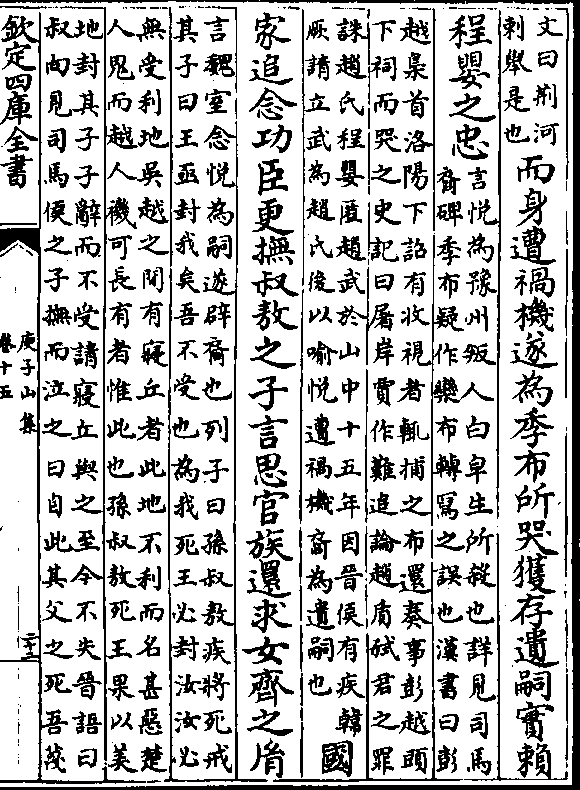 文曰荆河
刺舉是也
而身遭禍機遂為季布所哭獲存遺嗣實賴
程嬰之忠
言悅為豫州叛人白皁生所殺也詳見司馬
裔碑季布疑作欒布轉寫之誤也漢書曰彭
越梟首洛陽下詔有收視者輒捕之布還奏事彭越頭
下祠而哭之史記曰屠岸賈作難追論趙盾弑君之罪
誅趙氏程嬰匿趙武於山中十五年因晉侯有疾韓
厥請立武為趙氏後以喻悅遭禍機裔為遺嗣也
國
家追念功臣更撫叔敖之子言思官族還求女齊之胄
言魏室念悅為嗣遂辟裔也列子曰孫叔敖疾將死戒
其子曰王亟封我矣吾不受也為我死王必封汝汝必
無受利地吳越之間有寢丘者此地不利而名甚惡楚
人鬼而越人禨可長有者惟此也孫叔敖死王果以美
地封其子子辭而不受請寢丘與之至今不失晉語曰
叔向見司馬侯之子撫而泣之曰自此其父之死吾蔑
欽定四庫全書
庚子山集
卷十五